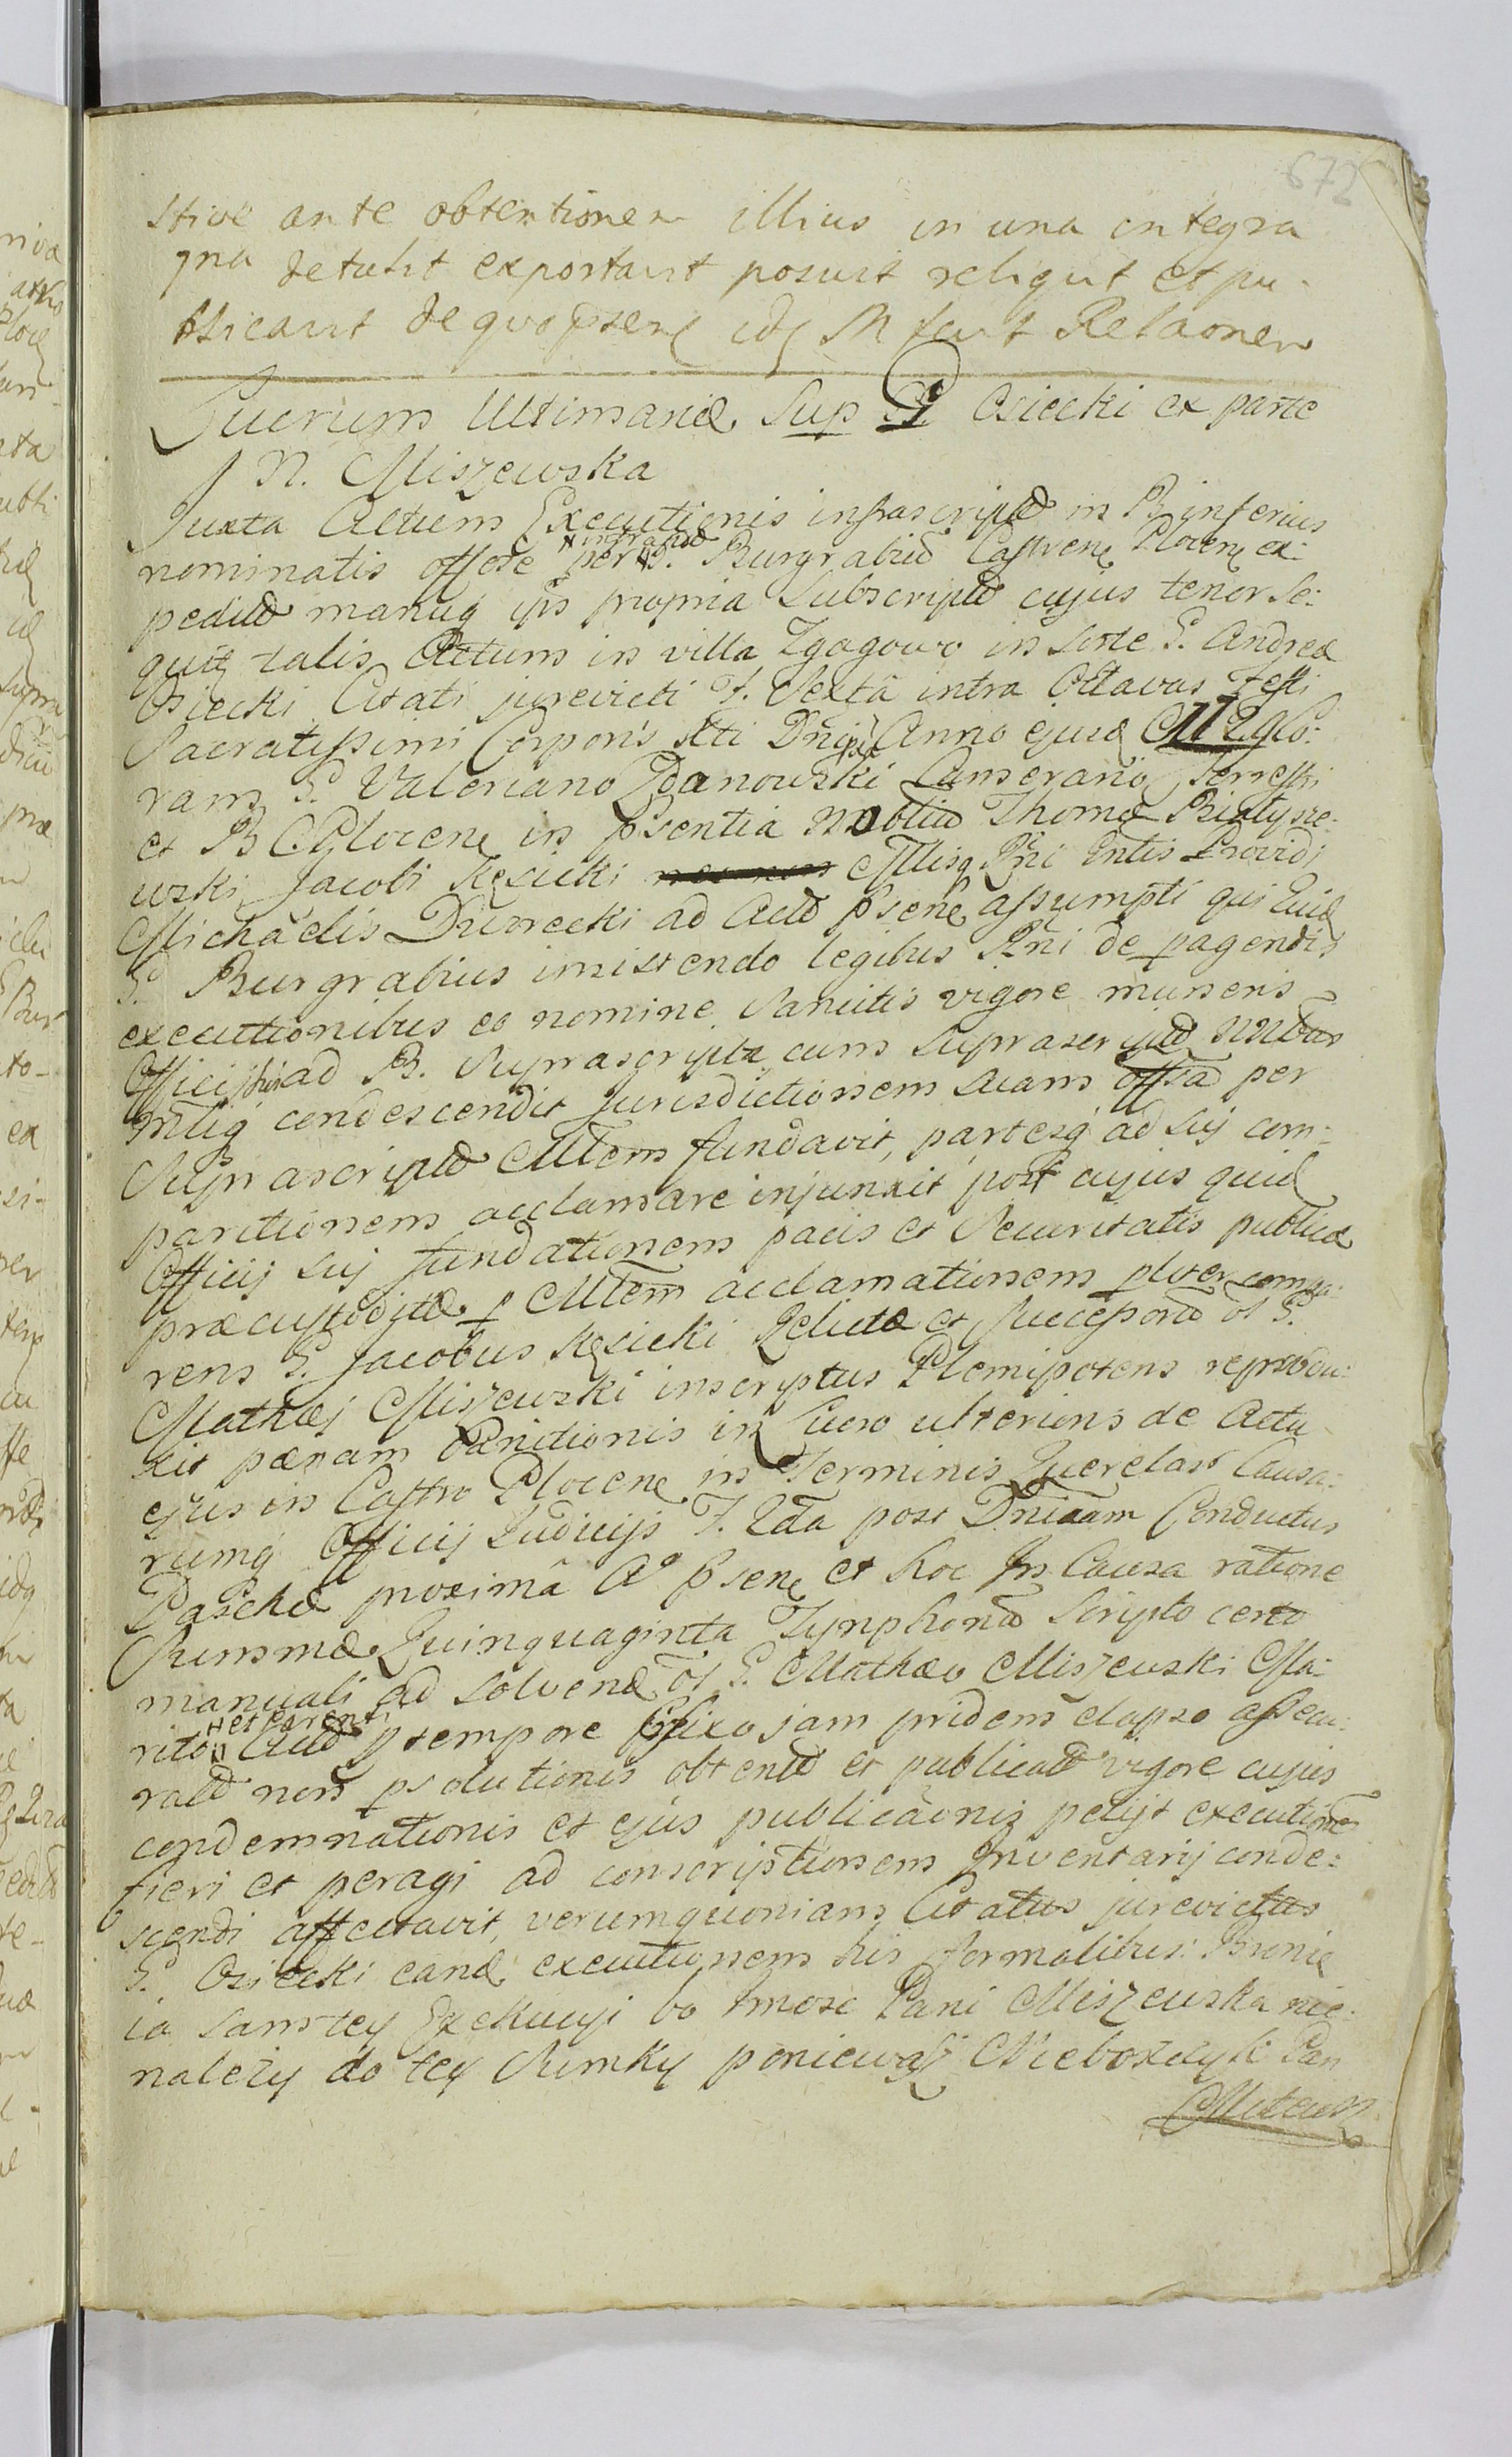 672
stive ante obtentionem illius in una integra
qna detulit exportavit posuit reliquit et pu-
blicavit de quo psen idq M fecit Relaonem
Lucrum Ultimariæ Sup G. Osiecki ex parte
N. Miszewska
Juxta Actum Executionis infrascriptæ in B. inferius
nominatis offose per G. Burgrabiu Castren Plocen ex:
N infrapos
peditæ manuq ips propria Subscriptæ cujus tenor se:
quit talis Actum in villa Zgagowo in sorte G. Andreæ
Osiecki Citati jurevicti F. Sextâ intra Octavas Festi
Sacratissimi Corporis Xti Dni Anno ejusd M Q. Co:
ram G. Valeriano Zdanowski Camerario Terrestri
et B C Plocen in psentia Nobliu Thomæ Bialysze:
wski Jacobi Kęsicki Mlisq Rni Entis Providi
Michaëlis Durrecki ad Actu psen assumpti qui Euid
G. Burgrabius insistendo legibus Rni de pagendis
executionibus eo nomine Sancitis vigore muneris
Officij sui ad B. Suprascripta cum suprascriptis Nblbus
Mliq condescendit Jurisdictionem suam offsam per
Suprascriptu Mltem fundavit, partesq ad sui com:
paritionem acclamare injunxit post cujus quid
Officij sui fundationem pacis et Securitatis publicæ
præcustoditæ p Mltem acclamationem plrter compa:
rens G. Jacobus Kęsicki Relictæ et Successoru ol G.
Mathæi Miszewski inscriptus Plenipotens reprodu:
xit pænam banitionis in Lucro ulterioris de Actu
ejus in Castro Plocen in Terminis Querelar Causa:
rumq Officij Judicijs F. 2da post Dnicam Conductus
Paschæ proximâ Ao psen et hoc In Causa ratione
Summæ Quinquaginta Tynphonu Scripto certo
manuali ad solvend ol G. Mathæo Miszewski Ma:
N et parenti
rito N Actd p tempore præfixo jam pridem elapso assecu:
ratæ non psolutionis obtentæ et publicatæ vigore cujus
condemnationis et ejus publicãonis petijt executionem
fieri et peragi ad conscriptionem Inventarij conde:
scendi affectavit, verumquoniam Citatus jurevictus
G. Osiecki eand executionem his formalibus: Bronię
ia sam tey Exekucyi bo Jmośc Pani Miszewska nie:
należy do tey Sumky poniewasz Nieboszczyk Pan
Mateusz